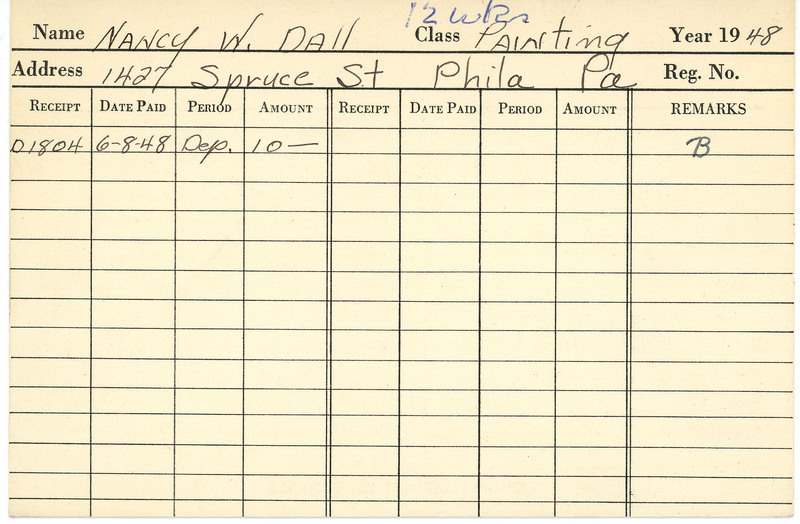 12 wks
Name NANCY W. DAll Class PAINTing Year 1948
Address 1427 Spruce St Phila Pa Reg. No.
RECEIPT DATE PAID PERIOD AMOUNT RECEIPT DATE PAID PERIOD AMOUNT REMARKS
D1804 6-8-48 Dep. 10— B